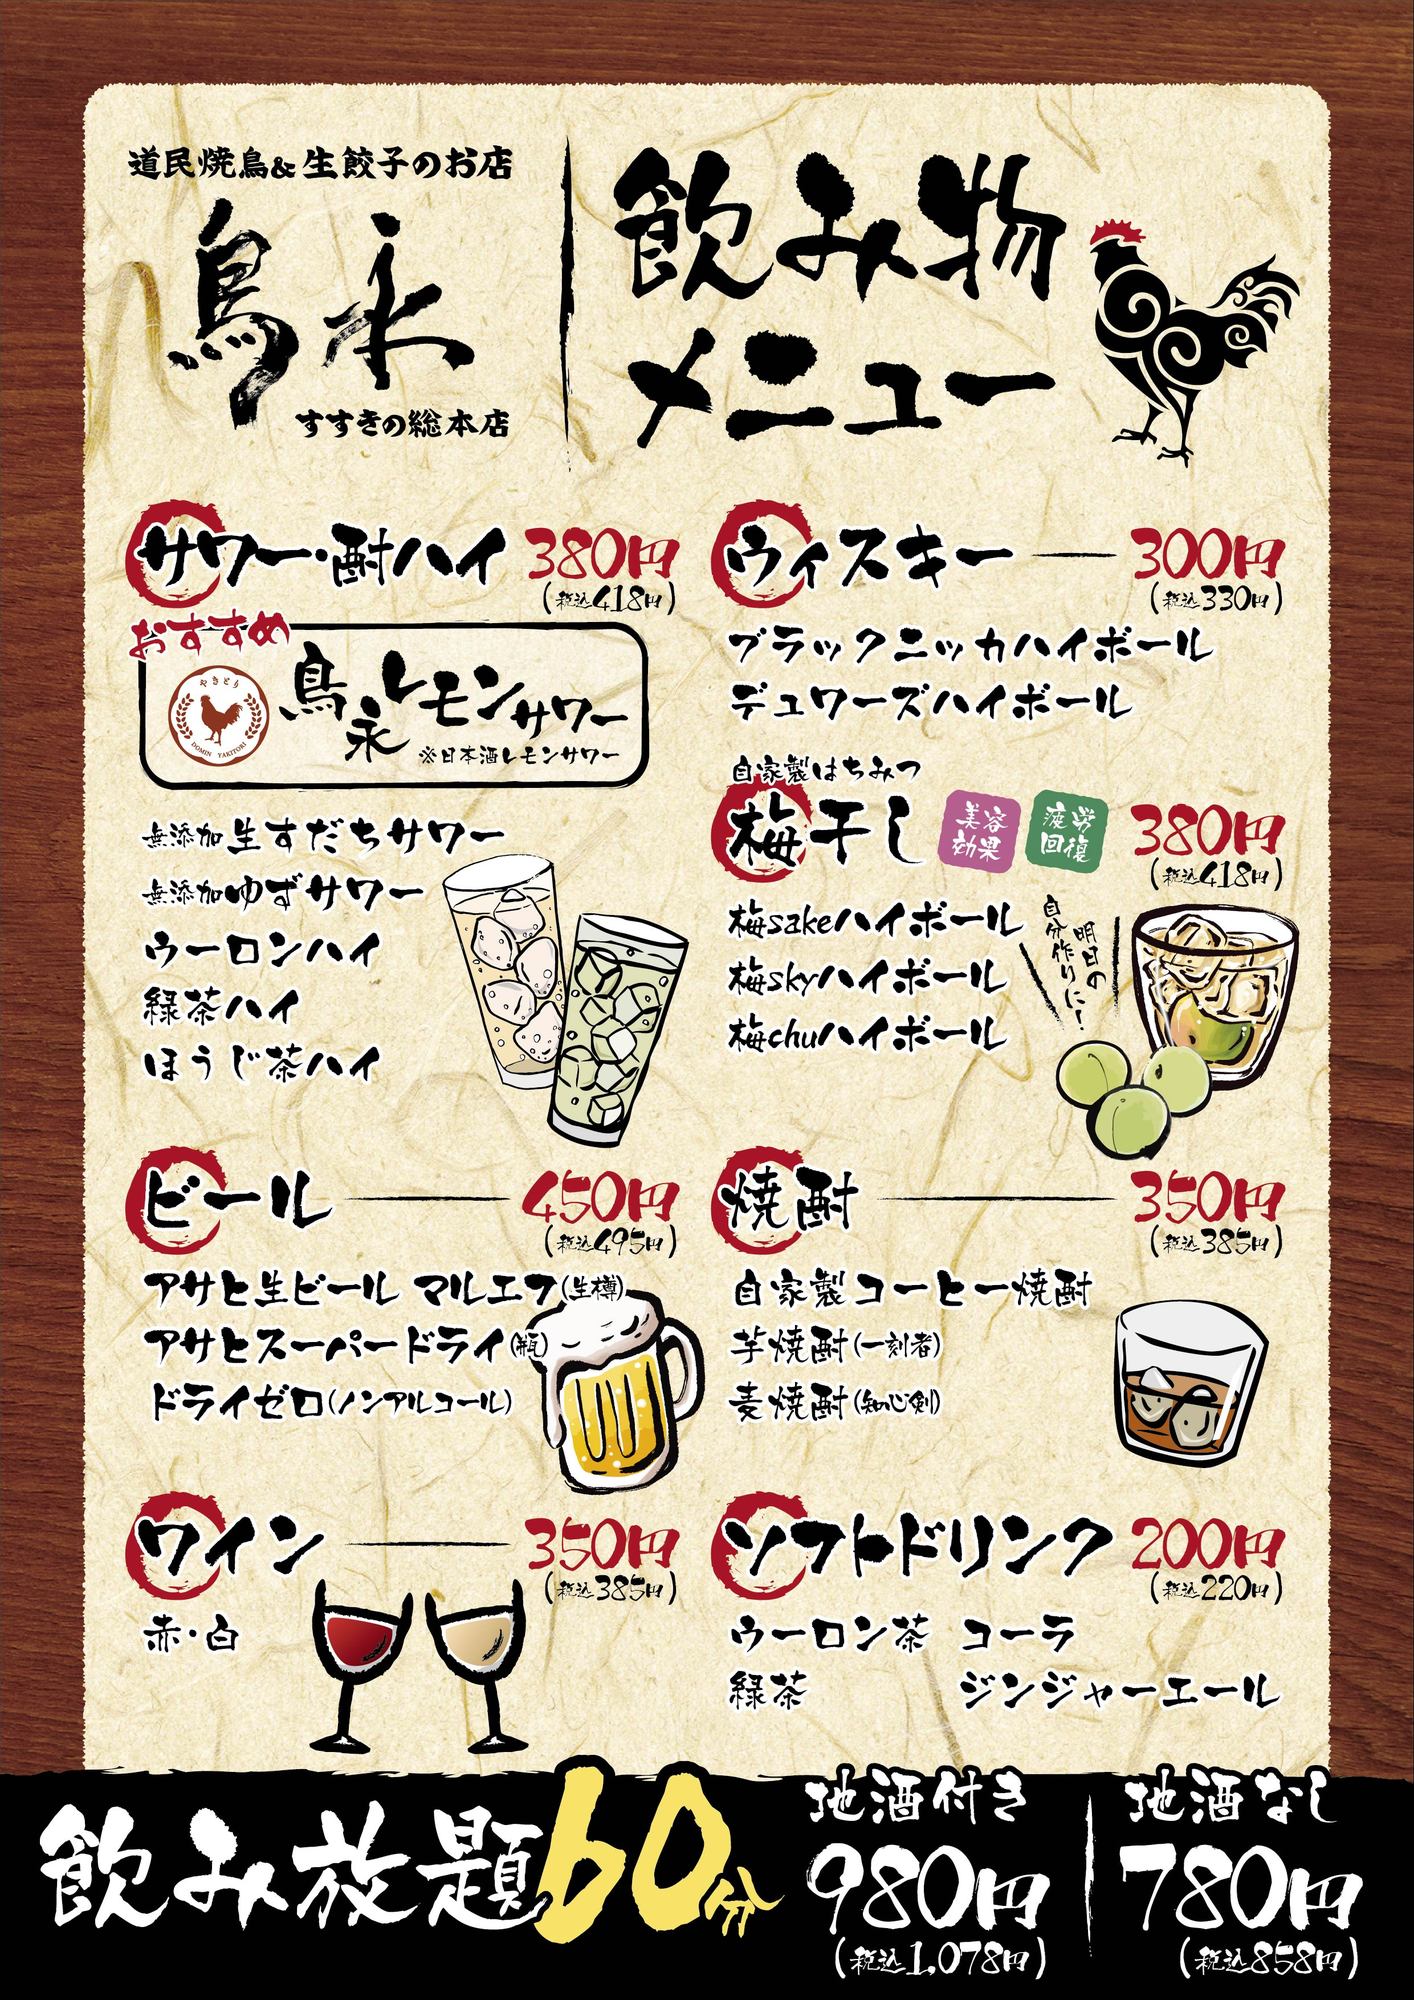 道民焼鳥&生餃子のお店
鳥永
すすきの総本店
飲み物
メニュー
サワー・酎ハイ 380円
(税込418円)
おすすめ
やきとり
DOMIN YAKITORI
鳥永レモンサワー
※日本酒レモンサワー
無添加生すだちサワー
無添加ゆずサワー
ウーロンハイ
緑茶ハイ
ほうじ茶ハイ
ウィスキー 300円
(税込330円)
ブラックニッカハイボール
デュワーズハイボール
自家製はちみつ
梅干し 美容効果 疲労回復 380円
(税込418円)
梅sakeハイボール
梅skyハイボール
梅chuハイボール
明日の
自分作りに!
ビール 450円
(税込495円)
アサヒ生ビール マルエフ(生樽)
アサヒスーパードライ(瓶)
ドライゼロ(ノンアルコール)
焼酎 350円
(税込385円)
自家製コーヒー焼酎
芋焼酎(一刻者)
麦焼酎(知心剣)
ワイン 350円
(税込385円)
赤・白
ソフトドリンク 200円
(税込220円)
ウーロン茶 コーラ
緑茶 ジンジャーエール
飲み放題60分
地酒付き
980円
(税込1,078円)
地酒なし
780円
(税込858円)